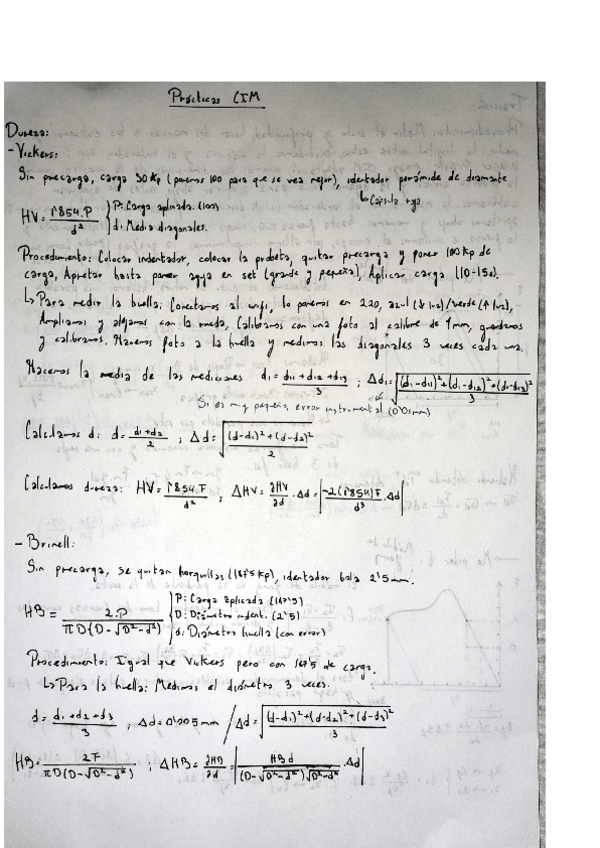 Prácticas CIM
Dureza:
- Vickers:
Sin precarga, carga 30Kp (ponemos 100 para que se vea mejor), identador piramide de diamante
↳ Cápsula roja
HV = 1'854·P / d² } P: Carga aplicada (100)
d: Media diagonales.
Procedimiento: Colocar indentador, colocar la probeta, quitar precarga y poner 100Kp de
carga, Apretar hasta poner aguja en set (grande y pequeña), Aplicar carga (10-15s).
↳ Para medir la huella: Conectamos al wifi, lo ponemos en 220, azul (↓ luz)/verde (↑ luz),
Ampliamos y alejamos con la rueda, Calibramos con una foto al calibre de 1mm, guardamos
y calibramos. Hacemos foto a la huella y medimos las diagonales 3 veces cada una.
Hacemos la media de las mediciones d₁ = (d₁₁+d₁₂+d₁₃)/3 ; Δd₁ = √(((d₁-d₁₁)²+(d₁-d₁₂)²+(d₁-d₁₃)²)/3)
Si es muy pequeño, error instrumental (0'01mm)
Calculamos d: d = (d₁+d₂)/2 ; Δd = √(((d-d₁)²+(d-d₂)²)/2)
Calculamos dureza: HV = 1'854·F / d² ; ΔHV = ∂HV/∂d · Δd = |-2(1'854)F / d³ · Δd|
- Brinell:
Sin precarga, se quitan horquillas (187'5 Kp), identador bola 2'5mm.
HB = 2·P / (πD(D-√(D²-d²))) } P: Carga aplicada (187'5)
D: Diámetro indent. (2'5)
d: Diámetro huella (con error)
Procedimiento: Igual que Vickers pero con 187'5 de carga.
↳ Para la huella: Medimos el diámetro 3 veces.
d = (d₁+d₂+d₃)/3 ; Δd = 0'005mm / Δd = √(((d-d₁)²+(d-d₂)²+(d-d₃)²)/3)
HB = 2F / (πD(D-√(D²-d²))) ; ΔHB = ∂HB/∂d = |HB·d / ((D-√(D²-d²))√(D²-d²)) · Δd|